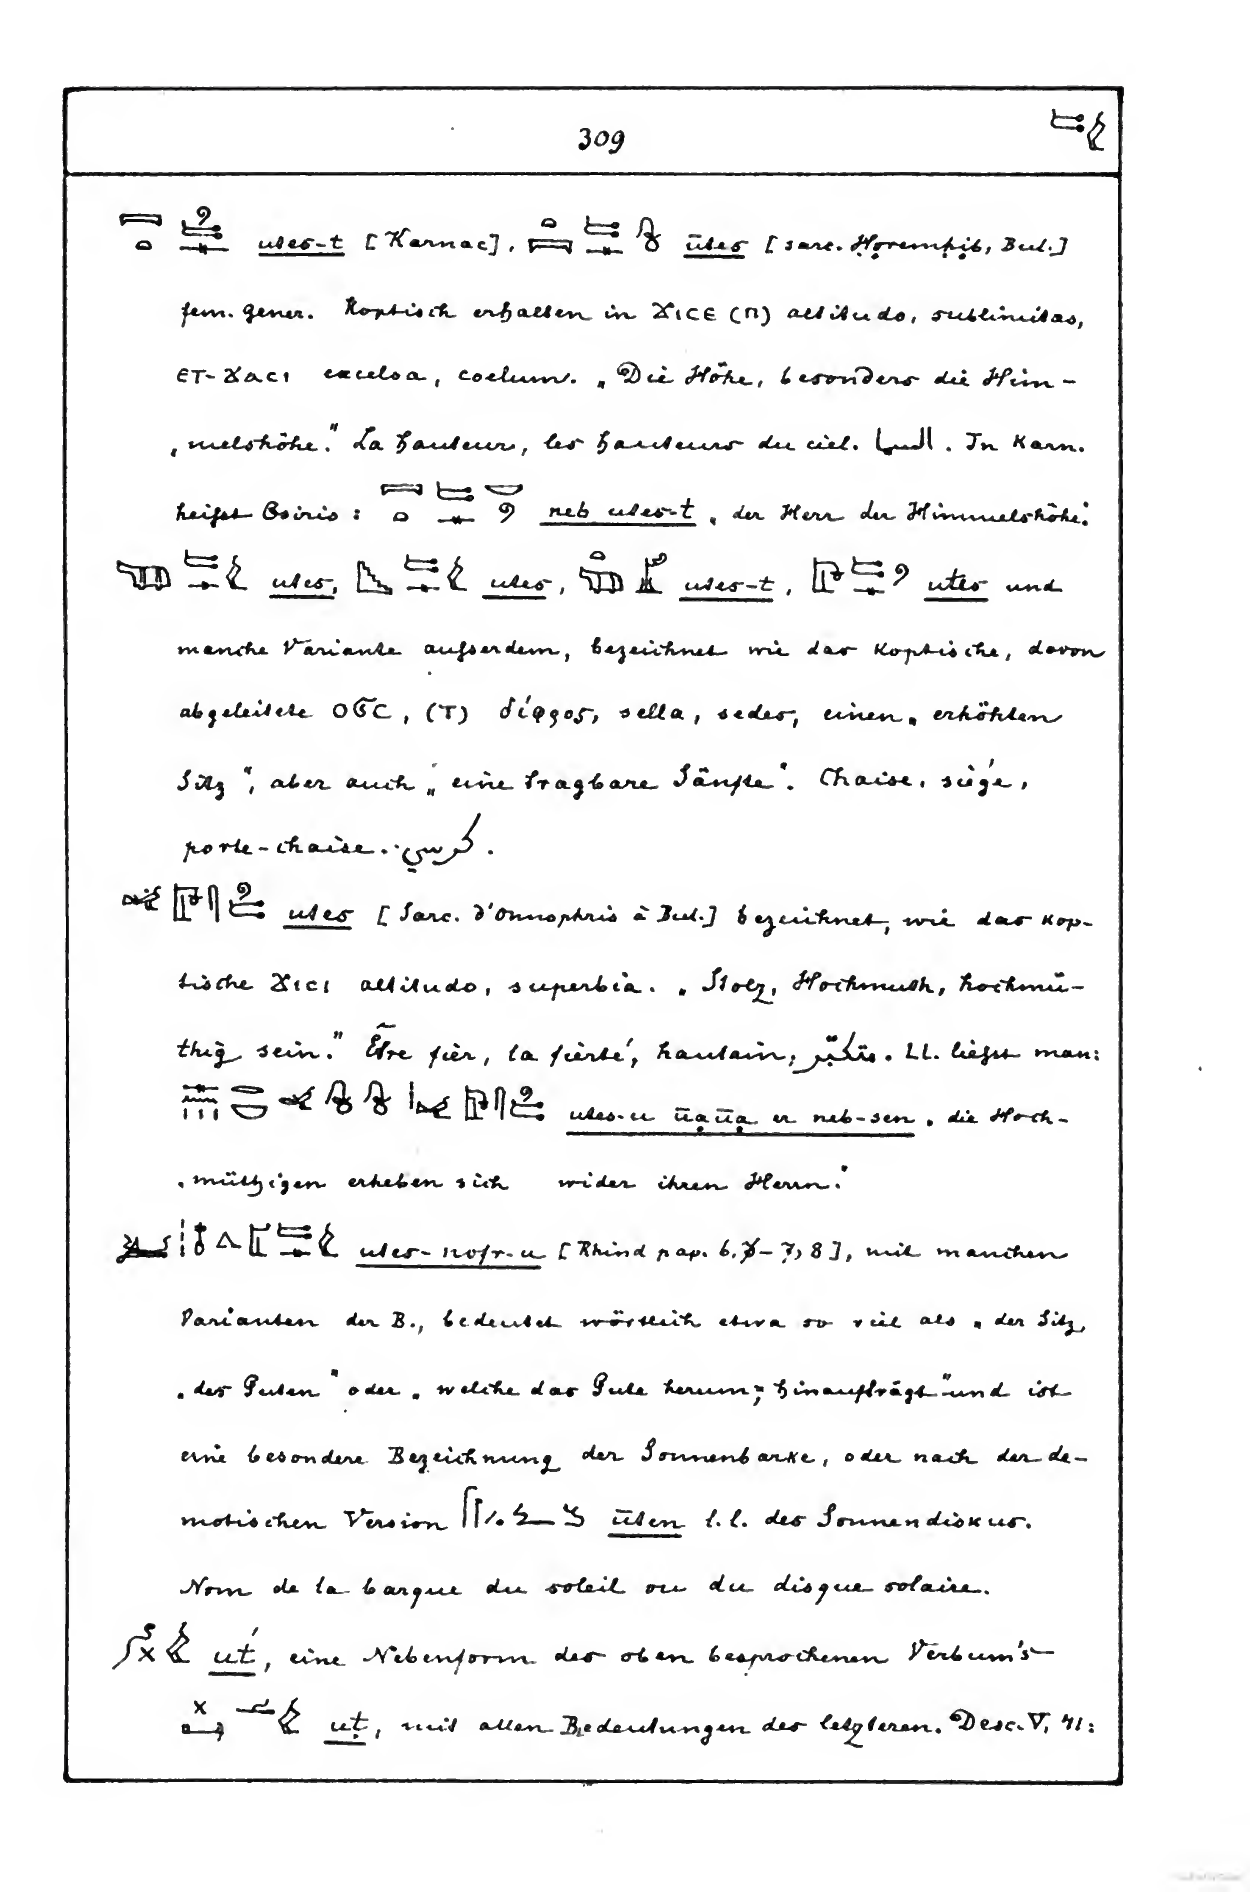 309
utes-t [Karnac], ūtes [sarc. Ḥoremḥib, Bul.]
fem. gener. Koptisch erhalten in ϪΙСЄ (Π) altitudo, sublimitas,
ЄΤ-Ϫаϲι excelsa, coelum. „Die Höhe, besonders die Him-
„melshöhe." La hauteur, les hauteurs du ciel. السما. In Karn.
heifst Osiris: neb utes-t „der Herr der Himmelshöhe."
utes, utes, utes-t, utes und
manche Variante aufserdem, bezeichnet wie das Koptische, davon
abgeleitete ΟϬС, (Τ) δίφρος, sella, sedes, einen „erhöhten
Sitz", aber auch „eine tragbare Sänfte". Chaise, siége,
porte-chaise. كرسي.
utes [Sarc. d'Onnophris à Bul.] bezeichnet, wie das kop-
tische Ϫιϲι altitudo, superbia. „Stolz, Hochmuth, hochmü-
thig sein." Être fier, la fierté, hautain, متكبّر. LL. liefst man:
utes-u ūạūạ er neb-sen „die Hoch-
„müthigen erheben sich wider ihren Herrn."
utes-nofr-u [Rhind pap. 6. 7, 8], mit manchen
Varianten der B., bedeutet wörtlich etwa so viel als „der Sitz
„des Guten" oder „welche das Gute herum-, hinaufträgt" und ist
eine besondere Bezeichnung der Sonnenbarke, oder nach der de-
motischen Version ūten l.l. des Sonnendiskus.
Nom de la barque du soleil ou du disque solaire.
ut́, eine Nebenform des oben besprochenen Verbum's
uṭ, mit allen Bedeutungen des letzteren. Desc. V, 41: